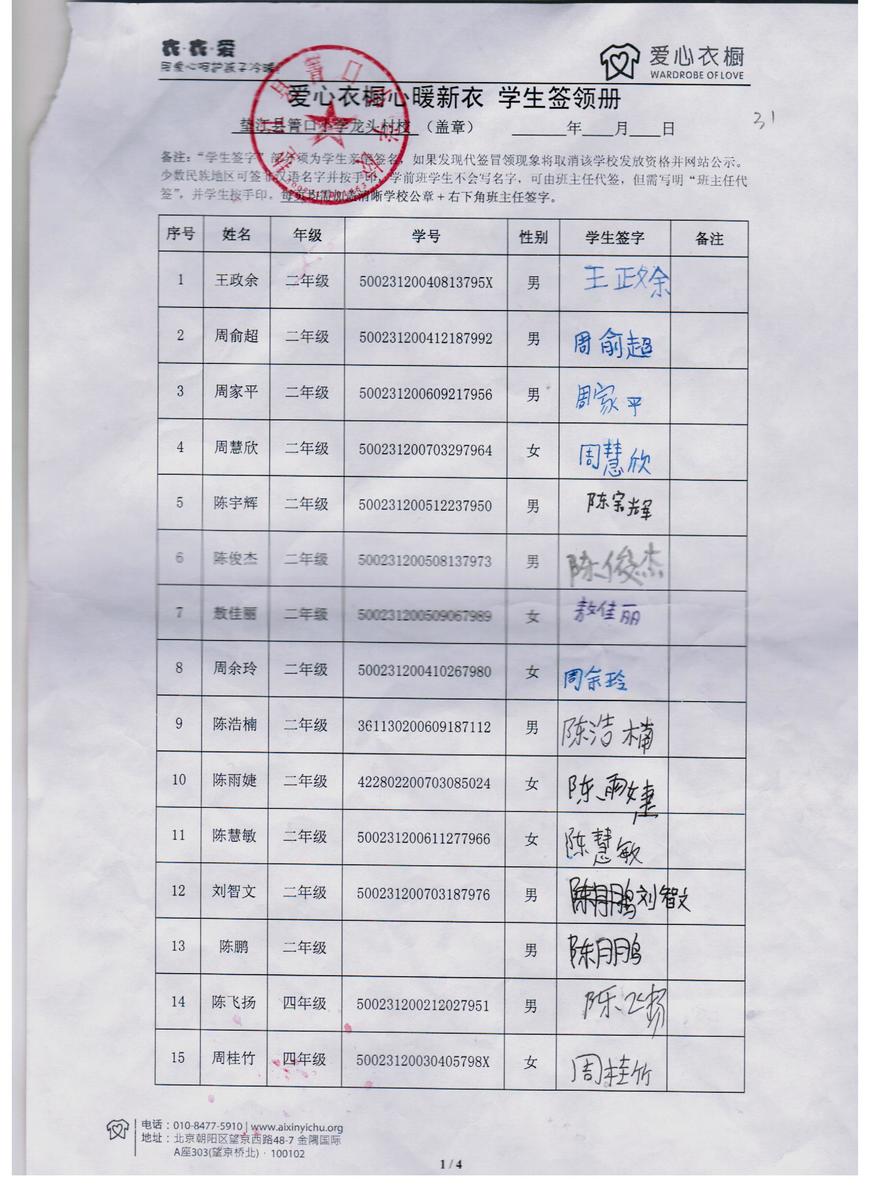 衣·衣·爱
用爱心呵护孩子冷暖
爱心衣橱
WARDROBE OF LOVE
爱心衣橱心暖新衣 学生签领册
垫江县箐口小学龙头村校 （盖章） 年 月 日
31
备注：“学生签字”部分须为学生亲笔签名，如果发现代签冒领现象将取消该学校发放资格并网站公示。
少数民族地区可签非汉语名字并按手印，学前班学生不会写名字，可由班主任代签，但需写明“班主任代
签”，并学生按手印。每页均需加盖清晰学校公章+右下角班主任签字。
序号 姓名 年级 学号 性别 学生签字 备注
1 王政余 二年级 50023120040813795X 男 王政余
2 周俞超 二年级 500231200412187992 男 周俞超
3 周家平 二年级 500231200609217956 男 周家平
4 周慧欣 二年级 500231200703297964 女 周慧欣
5 陈宇辉 二年级 500231200512237950 男 陈宇辉
6 陈俊杰 二年级 500231200508137973 男 陈俊杰
7 敖佳丽 二年级 500231200509067989 女 敖佳丽
8 周余玲 二年级 500231200410267980 女 周余玲
9 陈浩楠 二年级 361130200609187112 男 陈浩楠
10 陈雨婕 二年级 422802200703085024 女 陈雨婕
11 陈慧敏 二年级 500231200611277966 女 陈慧敏
12 刘智文 二年级 500231200703187976 男 陈鹏 刘智文
13 陈鹏 二年级 男 陈鹏
14 陈飞扬 四年级 500231200212027951 男 陈飞扬
15 周桂竹 四年级 50023120030405798X 女 周桂竹
电话：010-8477-5910 | www.aixinyichu.org
地址：北京朝阳区望京西路48-7 金隅国际
A座303(望京桥北)·100102
1 / 4